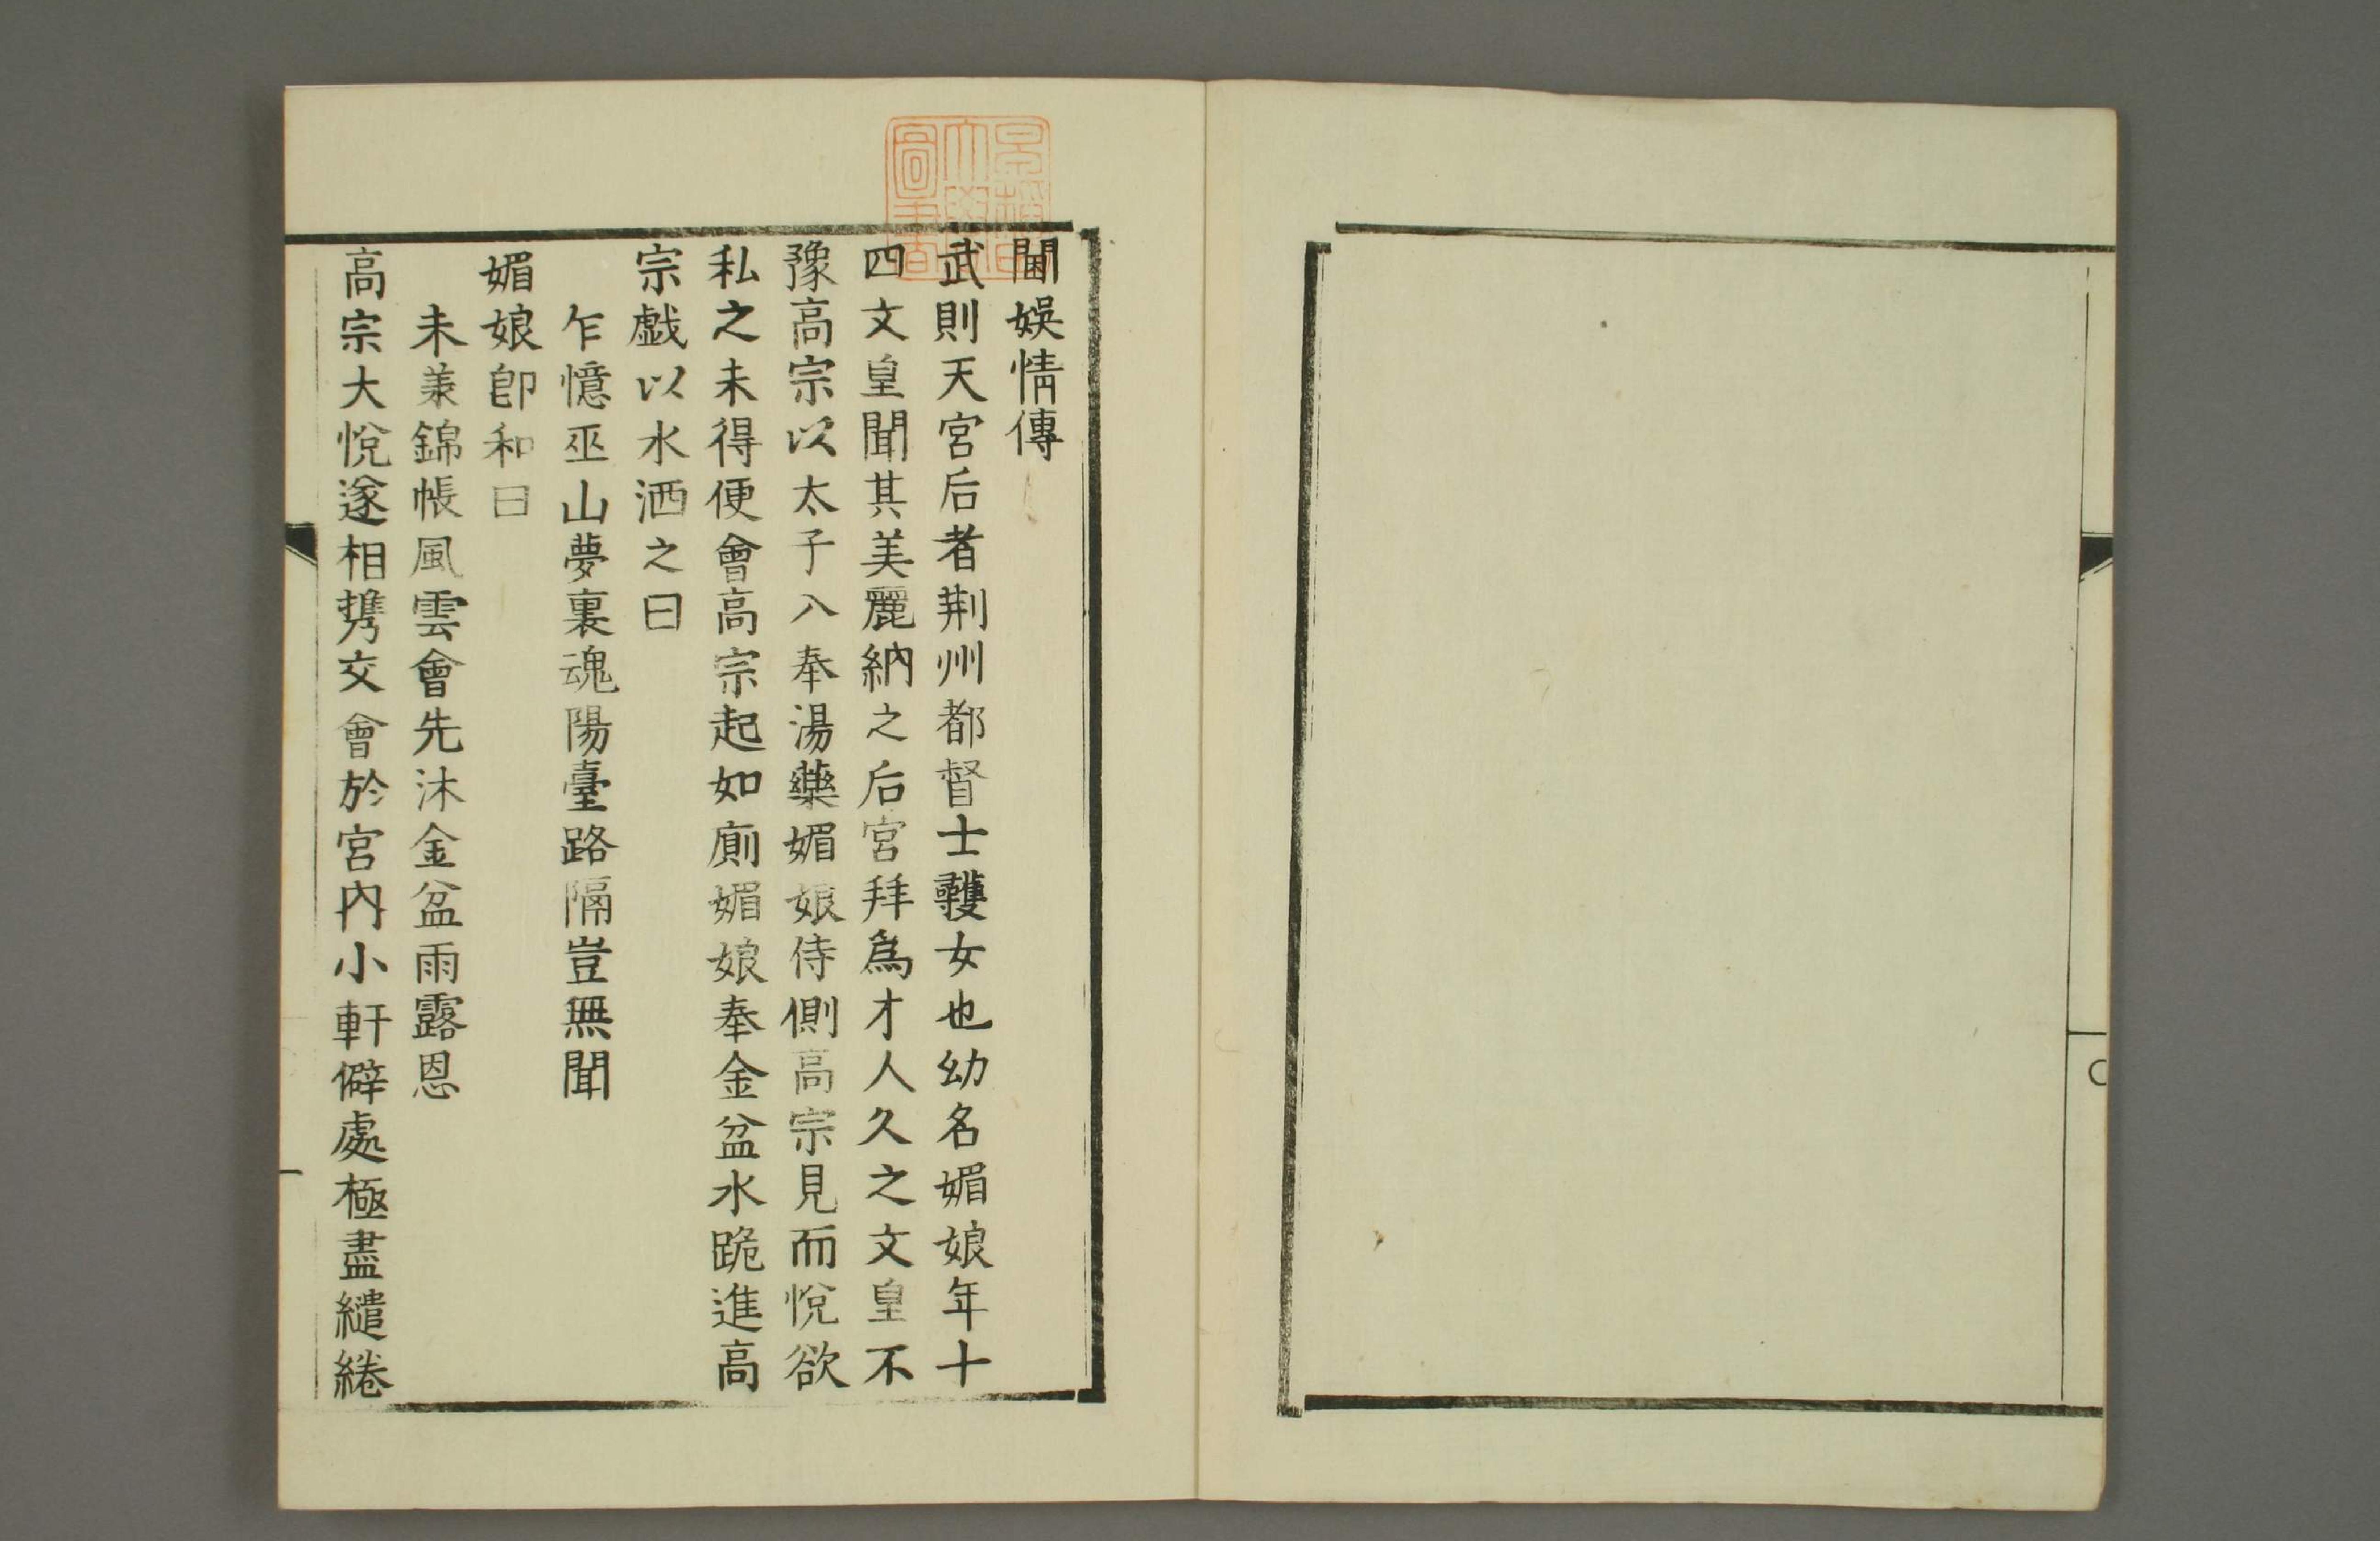 閫娛情傳
武則天宮后者荆州都督士彠女也幼名媚娘年十
四文皇聞其美麗納之后宮拜爲才人久之文皇不
豫高宗以太子入奉湯藥媚娘侍側高宗見而悅欲
私之未得便會高宗起如廁媚娘奉金盆水跪進高
宗戯以水洒之曰
乍憶巫山夢裏魂陽臺路隔豈無聞
媚娘卽和曰
未羕錦帳風雲會先沐金盆雨露恩
高宗大悅遂相携交會於宮內小軒僻處極盡繾綣